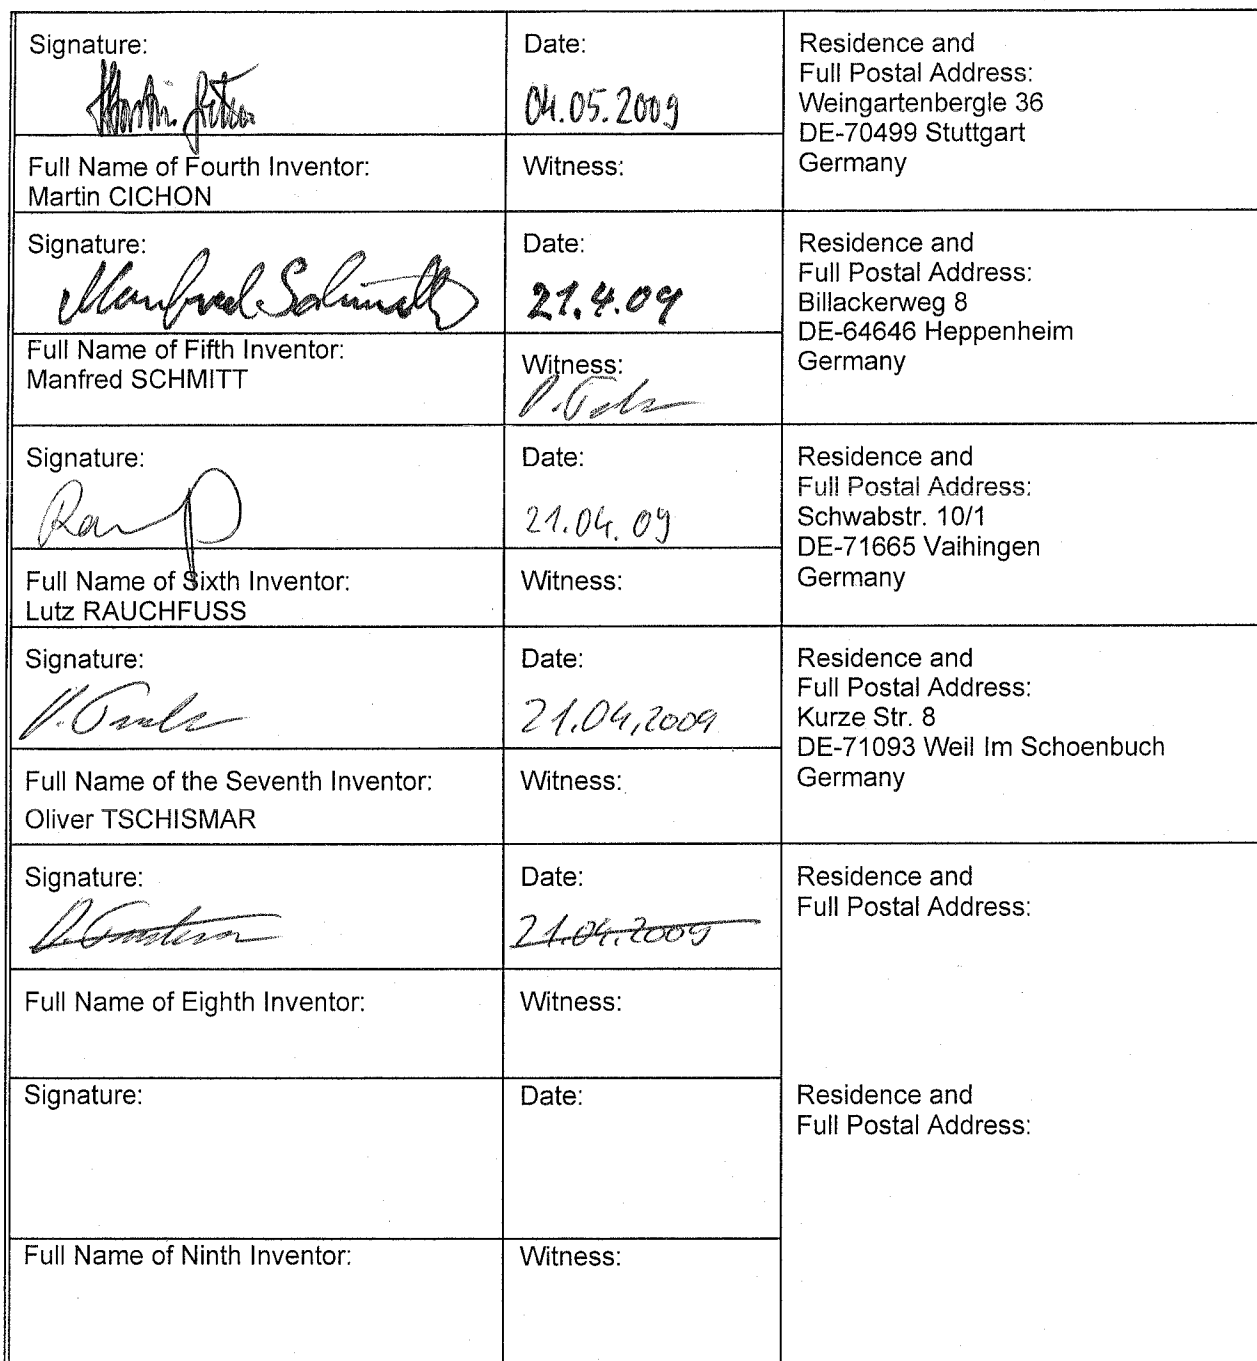 Signature:
Date:
04.05.2009
Residence and
Full Postal Address:
Weingartenbergle 36
DE-70499 Stuttgart
Germany
Full Name of Fourth Inventor:
Martin CICHON
Witness:
Signature:
Manfred Schmitt
Date:
21.4.09
Residence and
Full Postal Address:
Billackerweg 8
DE-64646 Heppenheim
Germany
Full Name of Fifth Inventor:
Manfred SCHMITT
Witness:
Signature:
Date:
21.04.09
Residence and
Full Postal Address:
Schwabstr. 10/1
DE-71665 Vaihingen
Germany
Full Name of Sixth Inventor:
Lutz RAUCHFUSS
Witness:
Signature:
Date:
21.04.2009
Residence and
Full Postal Address:
Kurze Str. 8
DE-71093 Weil Im Schoenbuch
Germany
Full Name of the Seventh Inventor:
Oliver TSCHISMAR
Witness:
Signature:
Date:
21.04.2009
Residence and
Full Postal Address:
Full Name of Eighth Inventor:
Witness:
Signature:
Date:
Residence and
Full Postal Address:
Full Name of Ninth Inventor:
Witness: